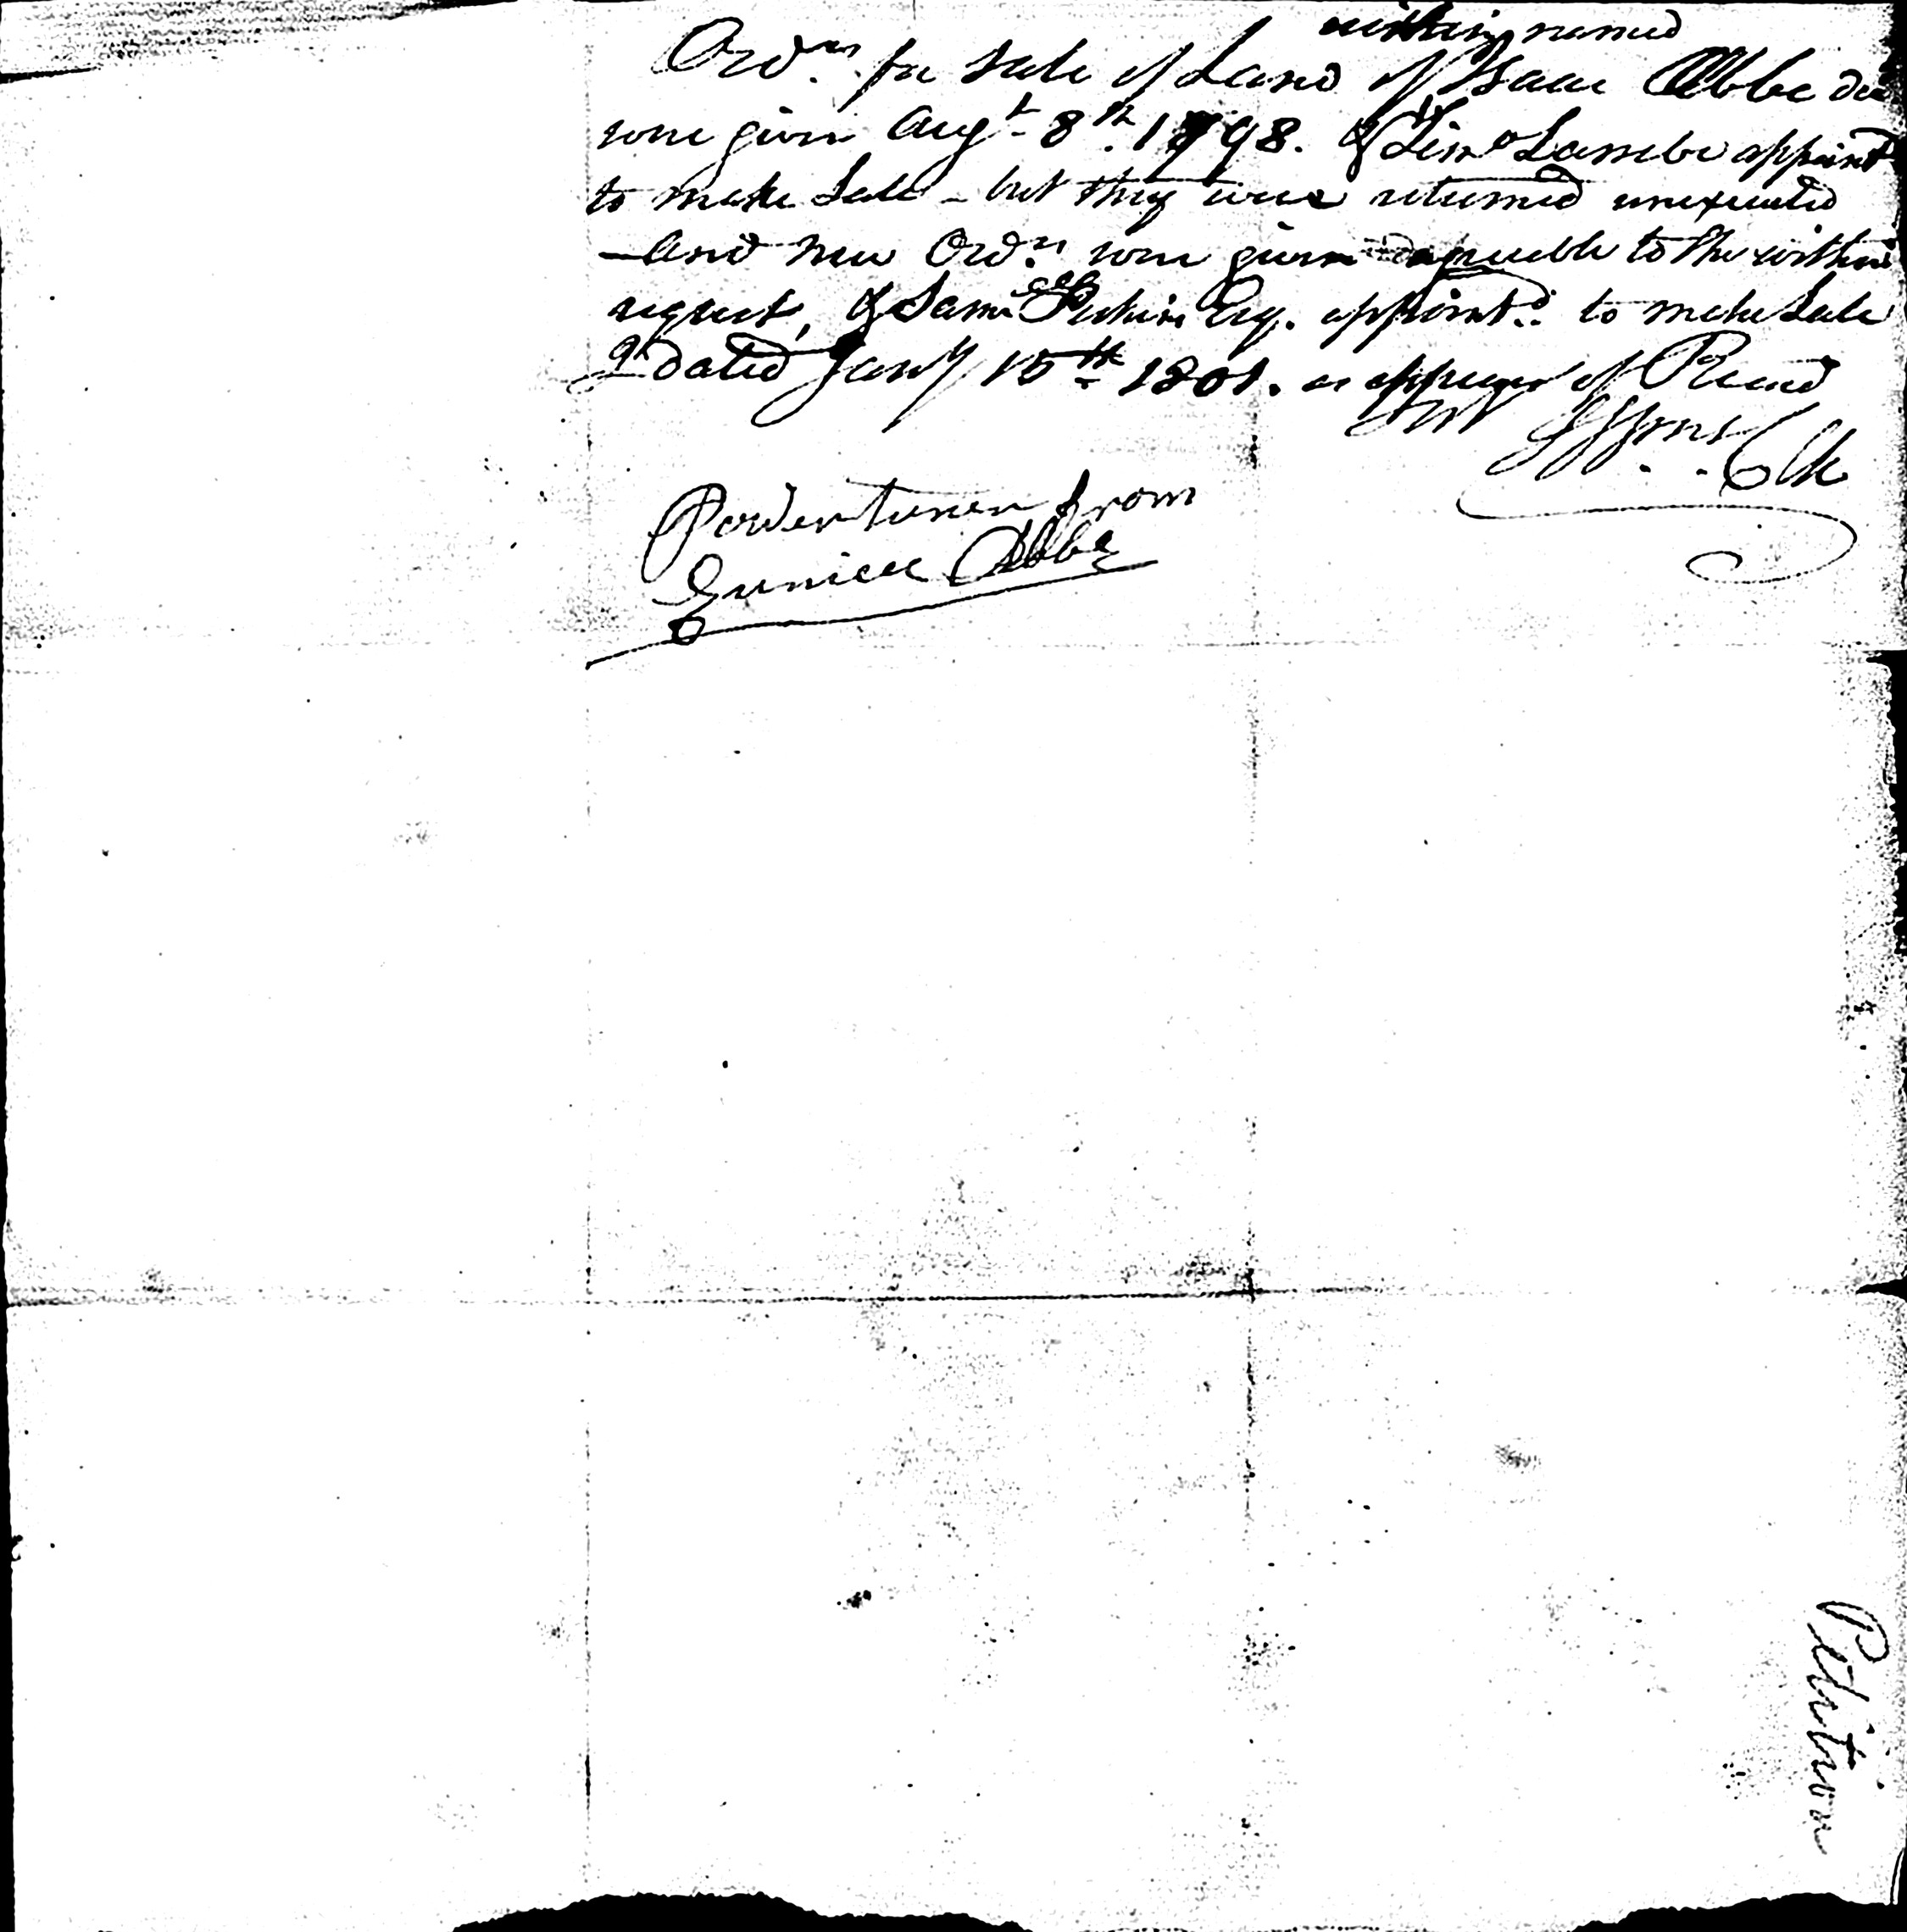 within named
Ord.rs for Sale of Land of Isaac Abbe de
were given Augt. 8th. 1798. & Simo Lambe appoint
to make Sale - but they were returned unexecuted
- and new Ord.rs were given agreeable to the within
request, & Saml Perkins Esq. appoint.d to make Sale
dated Jany 15th 1801. as appears of Record
Clk
Power turner from
Eunice Abbe
Petition